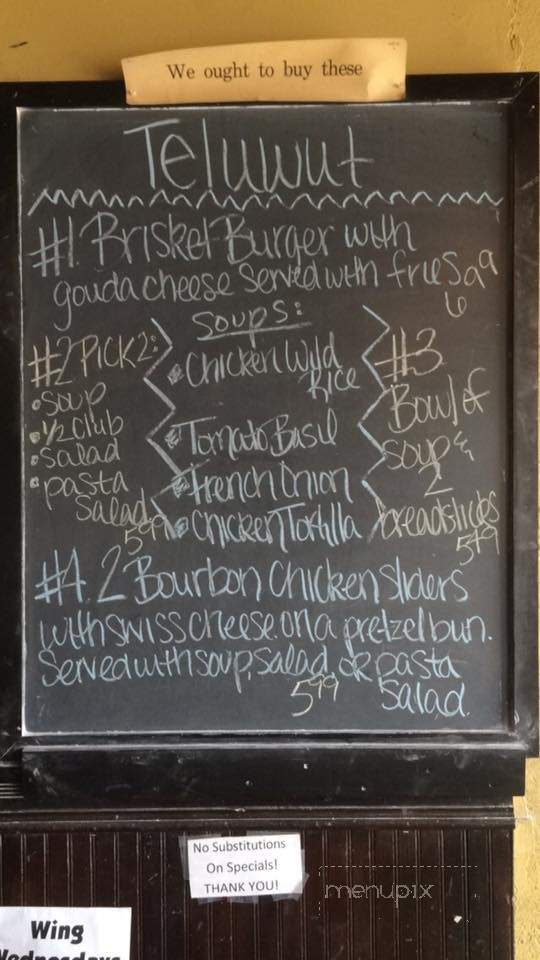 We ought to buy these
Teluwut
#1. Brisket Burger with
gouda cheese served with fries
6 99
#2 PICK 2:
• soup
• 1/2 club
• salad
• pasta
salad
5 99
Soups:
• Chicken Wild
Rice
• Tomato Basil
• French Onion
• Chicken Tortilla
#3
Bowl of
soup &
2
breadsticks
5 49
#4. 2 Bourbon Chicken sliders
with swiss cheese on a pretzel bun.
Served with soup, salad, or pasta
salad.
5 99
No Substitutions
On Specials!
THANK YOU!
menupix
Wing
Wednesdays